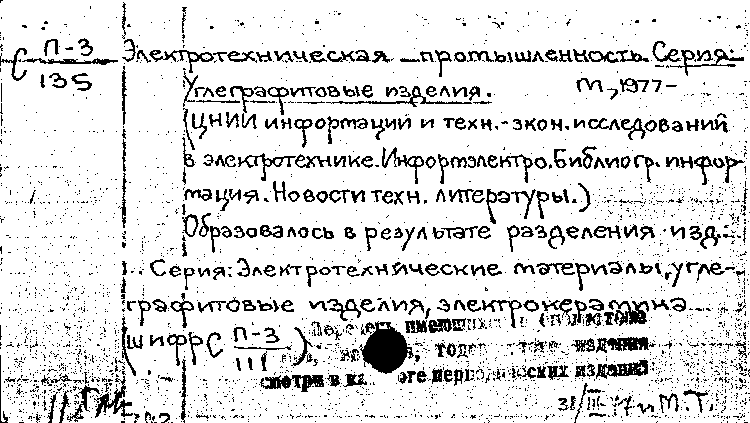 С П-3 Электротехническая промышленность. Серия:
135 Углеграфитовые изделия. М., 1977-
(ЦНИИ информаций и техн.-экон. исследований
в электротехнике. Информэлектро. Библиогр. инфор-
мация. Новости техн. литературы.)
Образовалось в результате разделения изд.:
Серия: Электротехнические материалы, угле-
графитовые изделия, электрокерамика
(шифр С П-3 ) Перечень имеющихся в
111 издания
смотри в периодических изданий
М.Т.